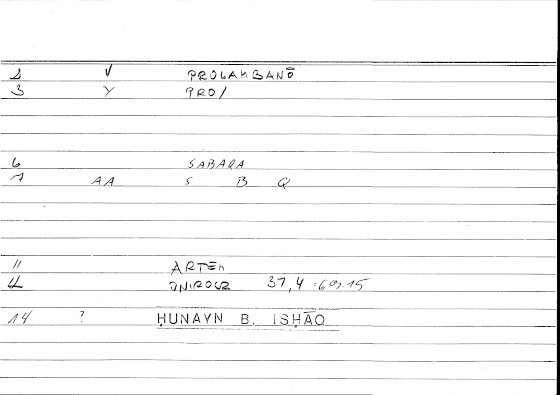 2 V PROLAMBANŌ
3 Y PRO/
6 SABARA
7 AA S B Q
11 ARTEM
ONIROCR 37,4
14 ? ḤUNAYN B. ISḤĀO